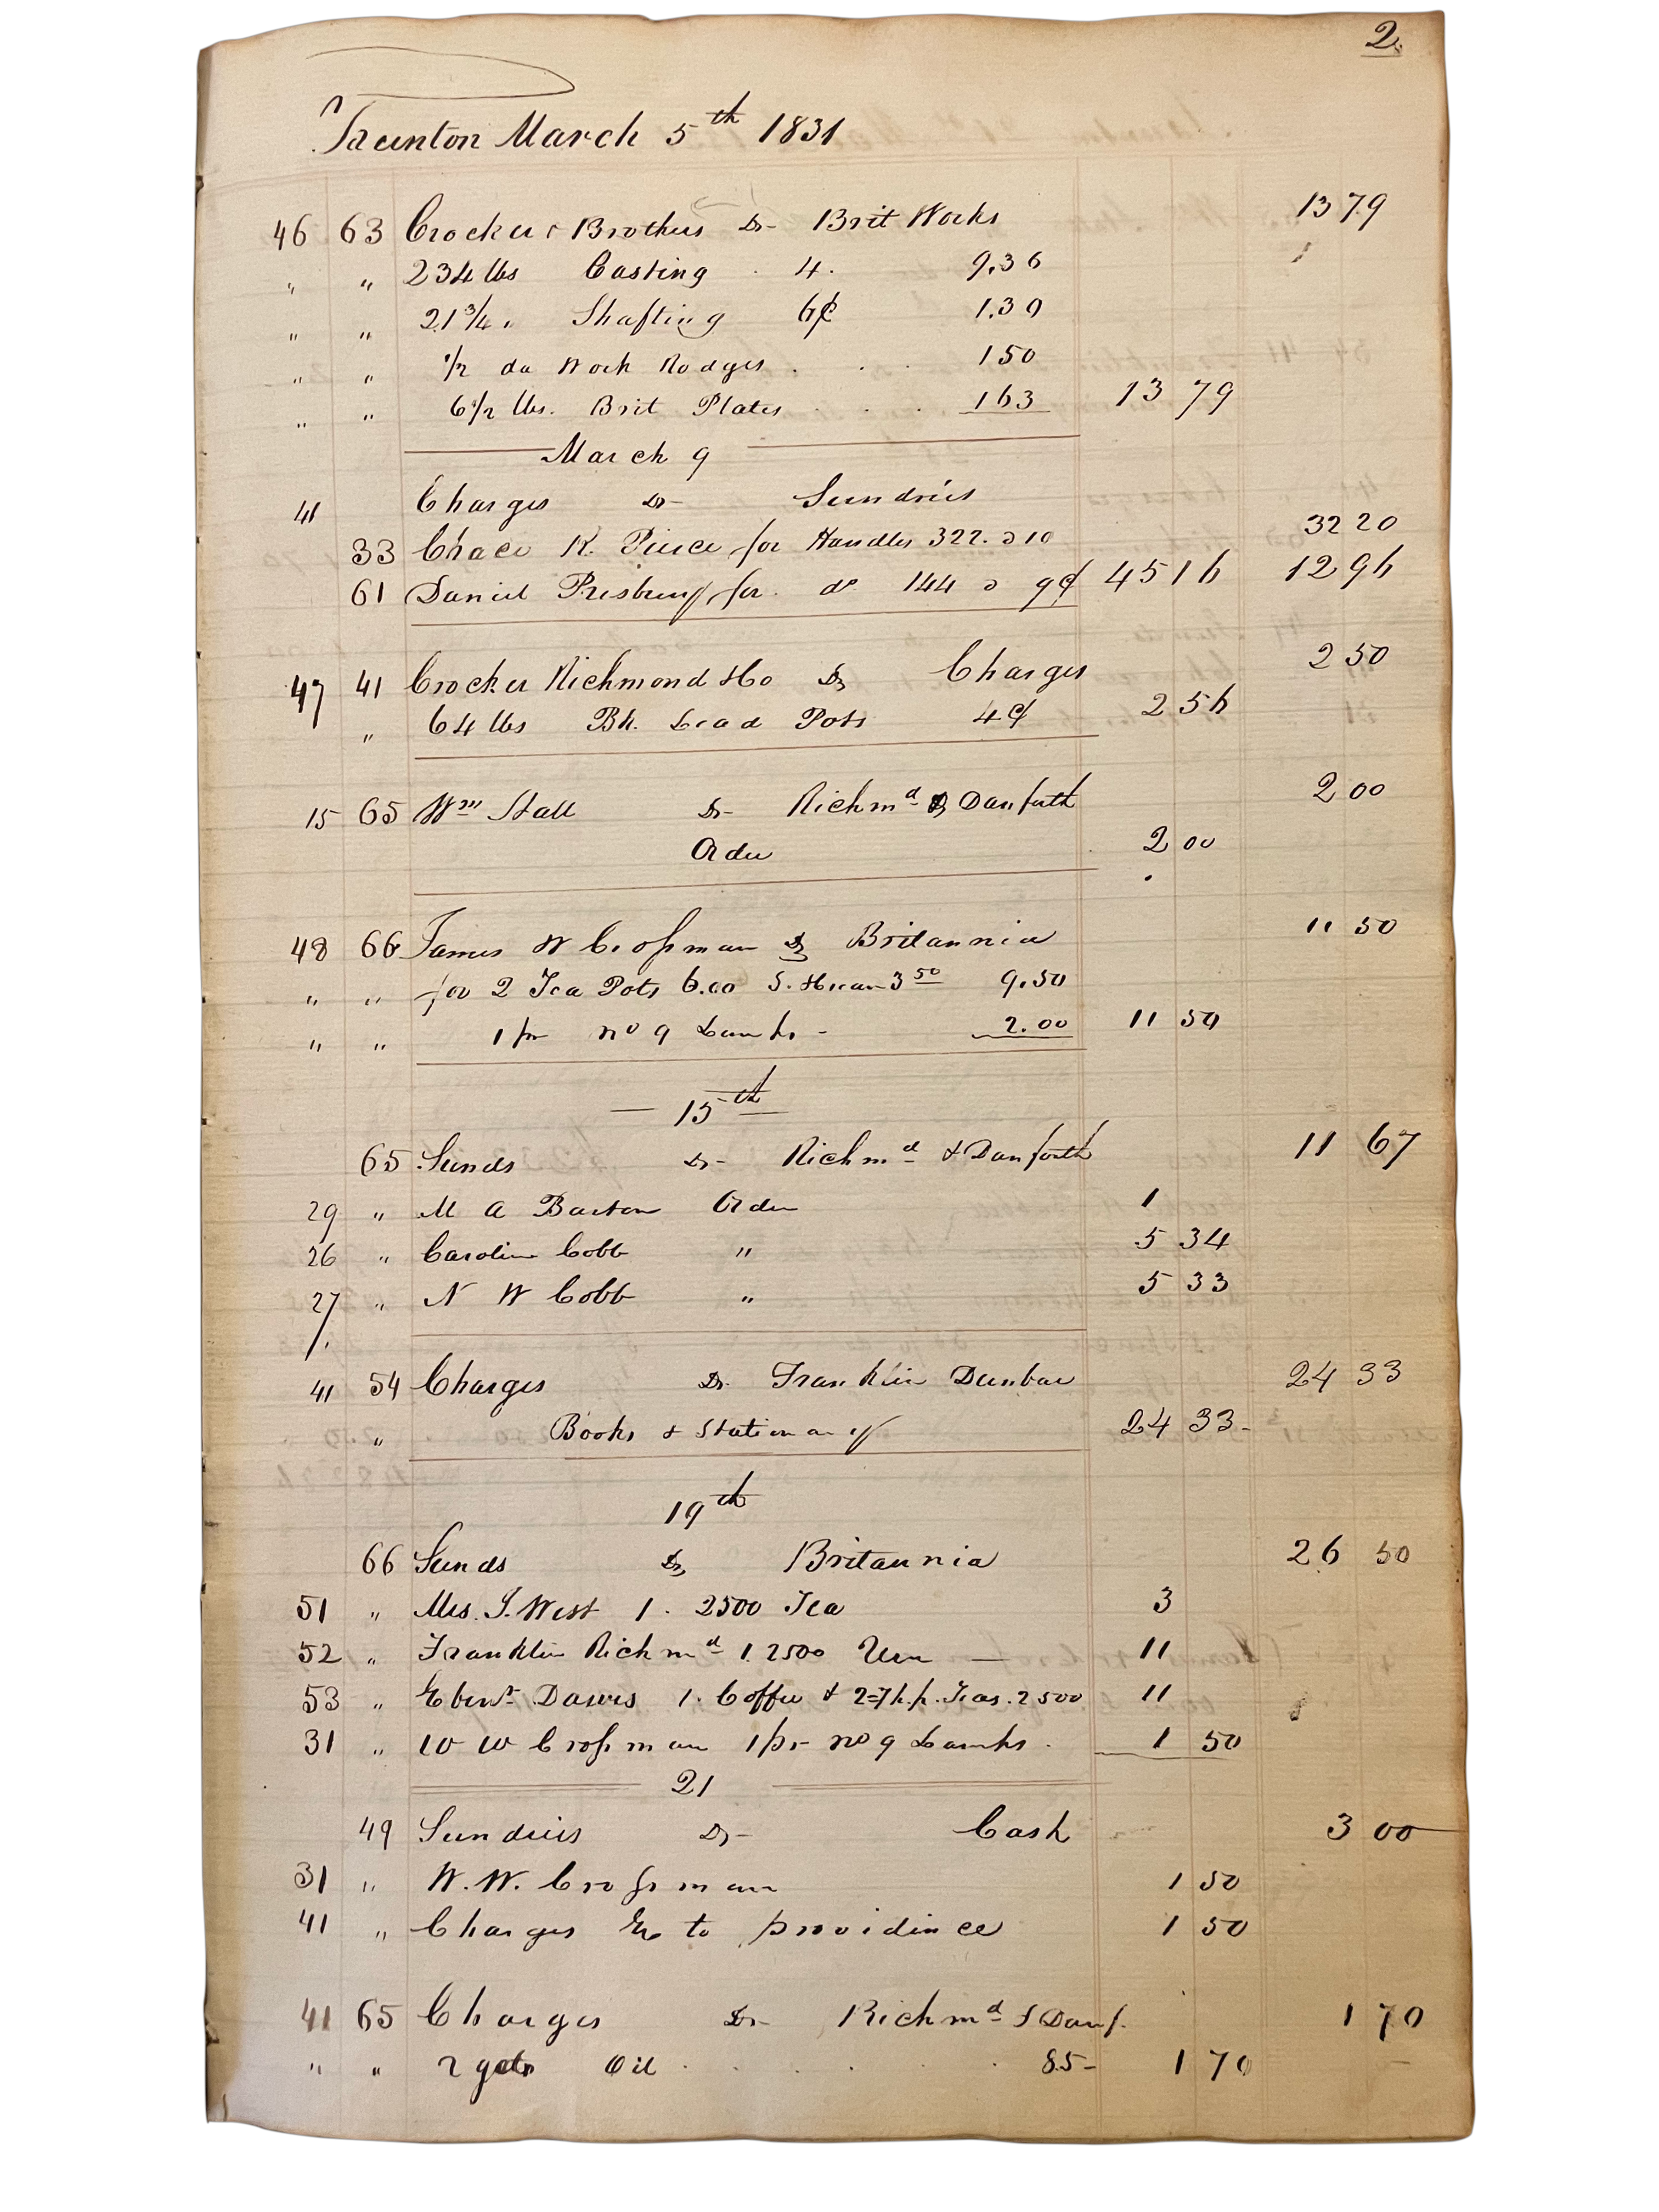 2.
Taunton March 5th 1831
46 63 Crocker & Brothers Dr Brit Works 13 79
" " 234 lbs Casting . 4. 9.36
" " 21 3/4 " Shafting 6¢ 1.30
" " 1/2 da Work 150
" " 6 1/2 lbs. Brit Plates . . . 163 13 79
March 9
41 Charges Dr Sundries
33 Chace K. Pierce for Handles 322. @ 10 32 20
61 Daniel Presbrey for do 144 @ 9¢ 45 16 12 96
47 41 Crocker Richmond & Co Dr Charges 2 50
" 64 lbs Bk. Lead Pots 4¢ 2 56
15 65 Wm Stall Dr Richmd & Danforth 2 00
Order 2 00
48 66 James W Crosman Dr Britannia 11 50
" " for 2 Tea Pots 6.00 3 50 9.50
" " 1 pr no 9 Lamps - 2.00 11 50
— 15th —
65 Sunds Dr Richmd & Danforth 11 67
29 " M A Barton Order 1
26 " Caroline Cobb " 5 34
27 " N W Cobb " 5 33
41 54 Charges Dr Franklin Dunbar 24 33
" Books & Stationary 24 33-
19th
66 Sunds Dr Britannia 26 50
51 " Mrs. J. West 1. 2500 Tea 3
52 " Franklin Richmd 1. 2500 Urn — 11
53 " Ebenr Dawes 1. Coffee & 2=7 h.p. Teas. 2500 11
31 " W W Crosman 1 pr no 9 Lamps . 1 50
21
49 Sundries Dr Cash 3 00
31 " W. W. Crosman 1 50
41 " Charges Ex to providince 1 50
41 65 Charges Dr Richmd & Danf. 1 70
" " 2 gals Oil . . . . . 85- 1 70